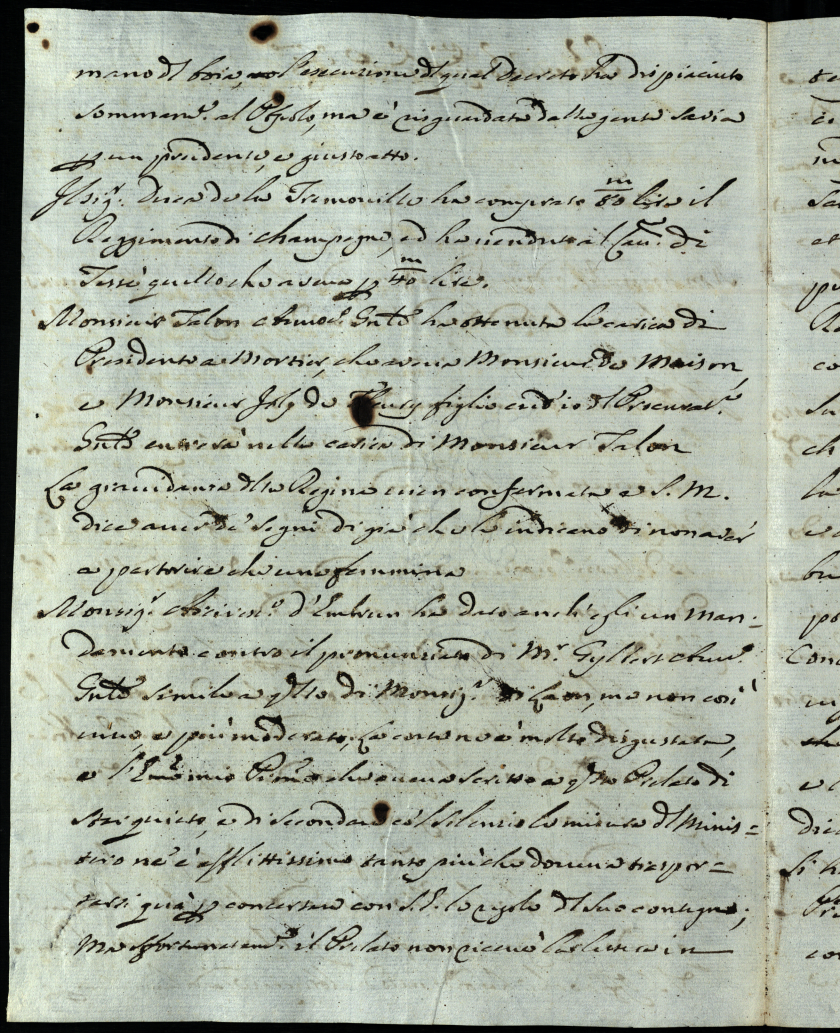 mano dl boia, l'esecuzione dl qual Decreto ha dispiaciuto
sommam.e al Popolo, ma è risguardata dalla gente savia
p un prudente, e giusto atto.
Il Sig.r Duca de la Tremouille ha comprato 80 m lire il
Reggimento di Champagne, ed ha venduto al Cav. di
Tessè quello che aveva p 40 m lire.
Monsieur Talon Avvoc.o Gnle ha ottenuta la carica di
Presidente a Mortier, che aveva Monsieur de Maison,
e Monsieur Joly de Fleury figlio cud'io dl Procurat.re
Gnle entrerà nella carica di Monsieur Talon
La gravidanza dlla Regina vien confermata e S. M.
dice aver de' segni di già che la indicano di non aver
a partorire che una femmina
Monsig.r Arcives.o d'Embrun ha dato anch'egli un Man=
damento contro il pronunciato di M.r Gylbert Avv.o
Gnle simile a qsto di Monsig.r di Laon, ma non così
vivo, e più moderato, La corte ne è molto disgustata,
e l'Emo mio Pmo che aveva scritto a qsto Prelato di
star quieto, e di secondare col silenzio le misure dl Minis=
tero ne è afflittissimo tanto più che doveva traspor=
tarsi quà p concertare con S. E. le regole dl suo contegno;
Ma sfortunatam.e il Prelato non ricevè la lettera in